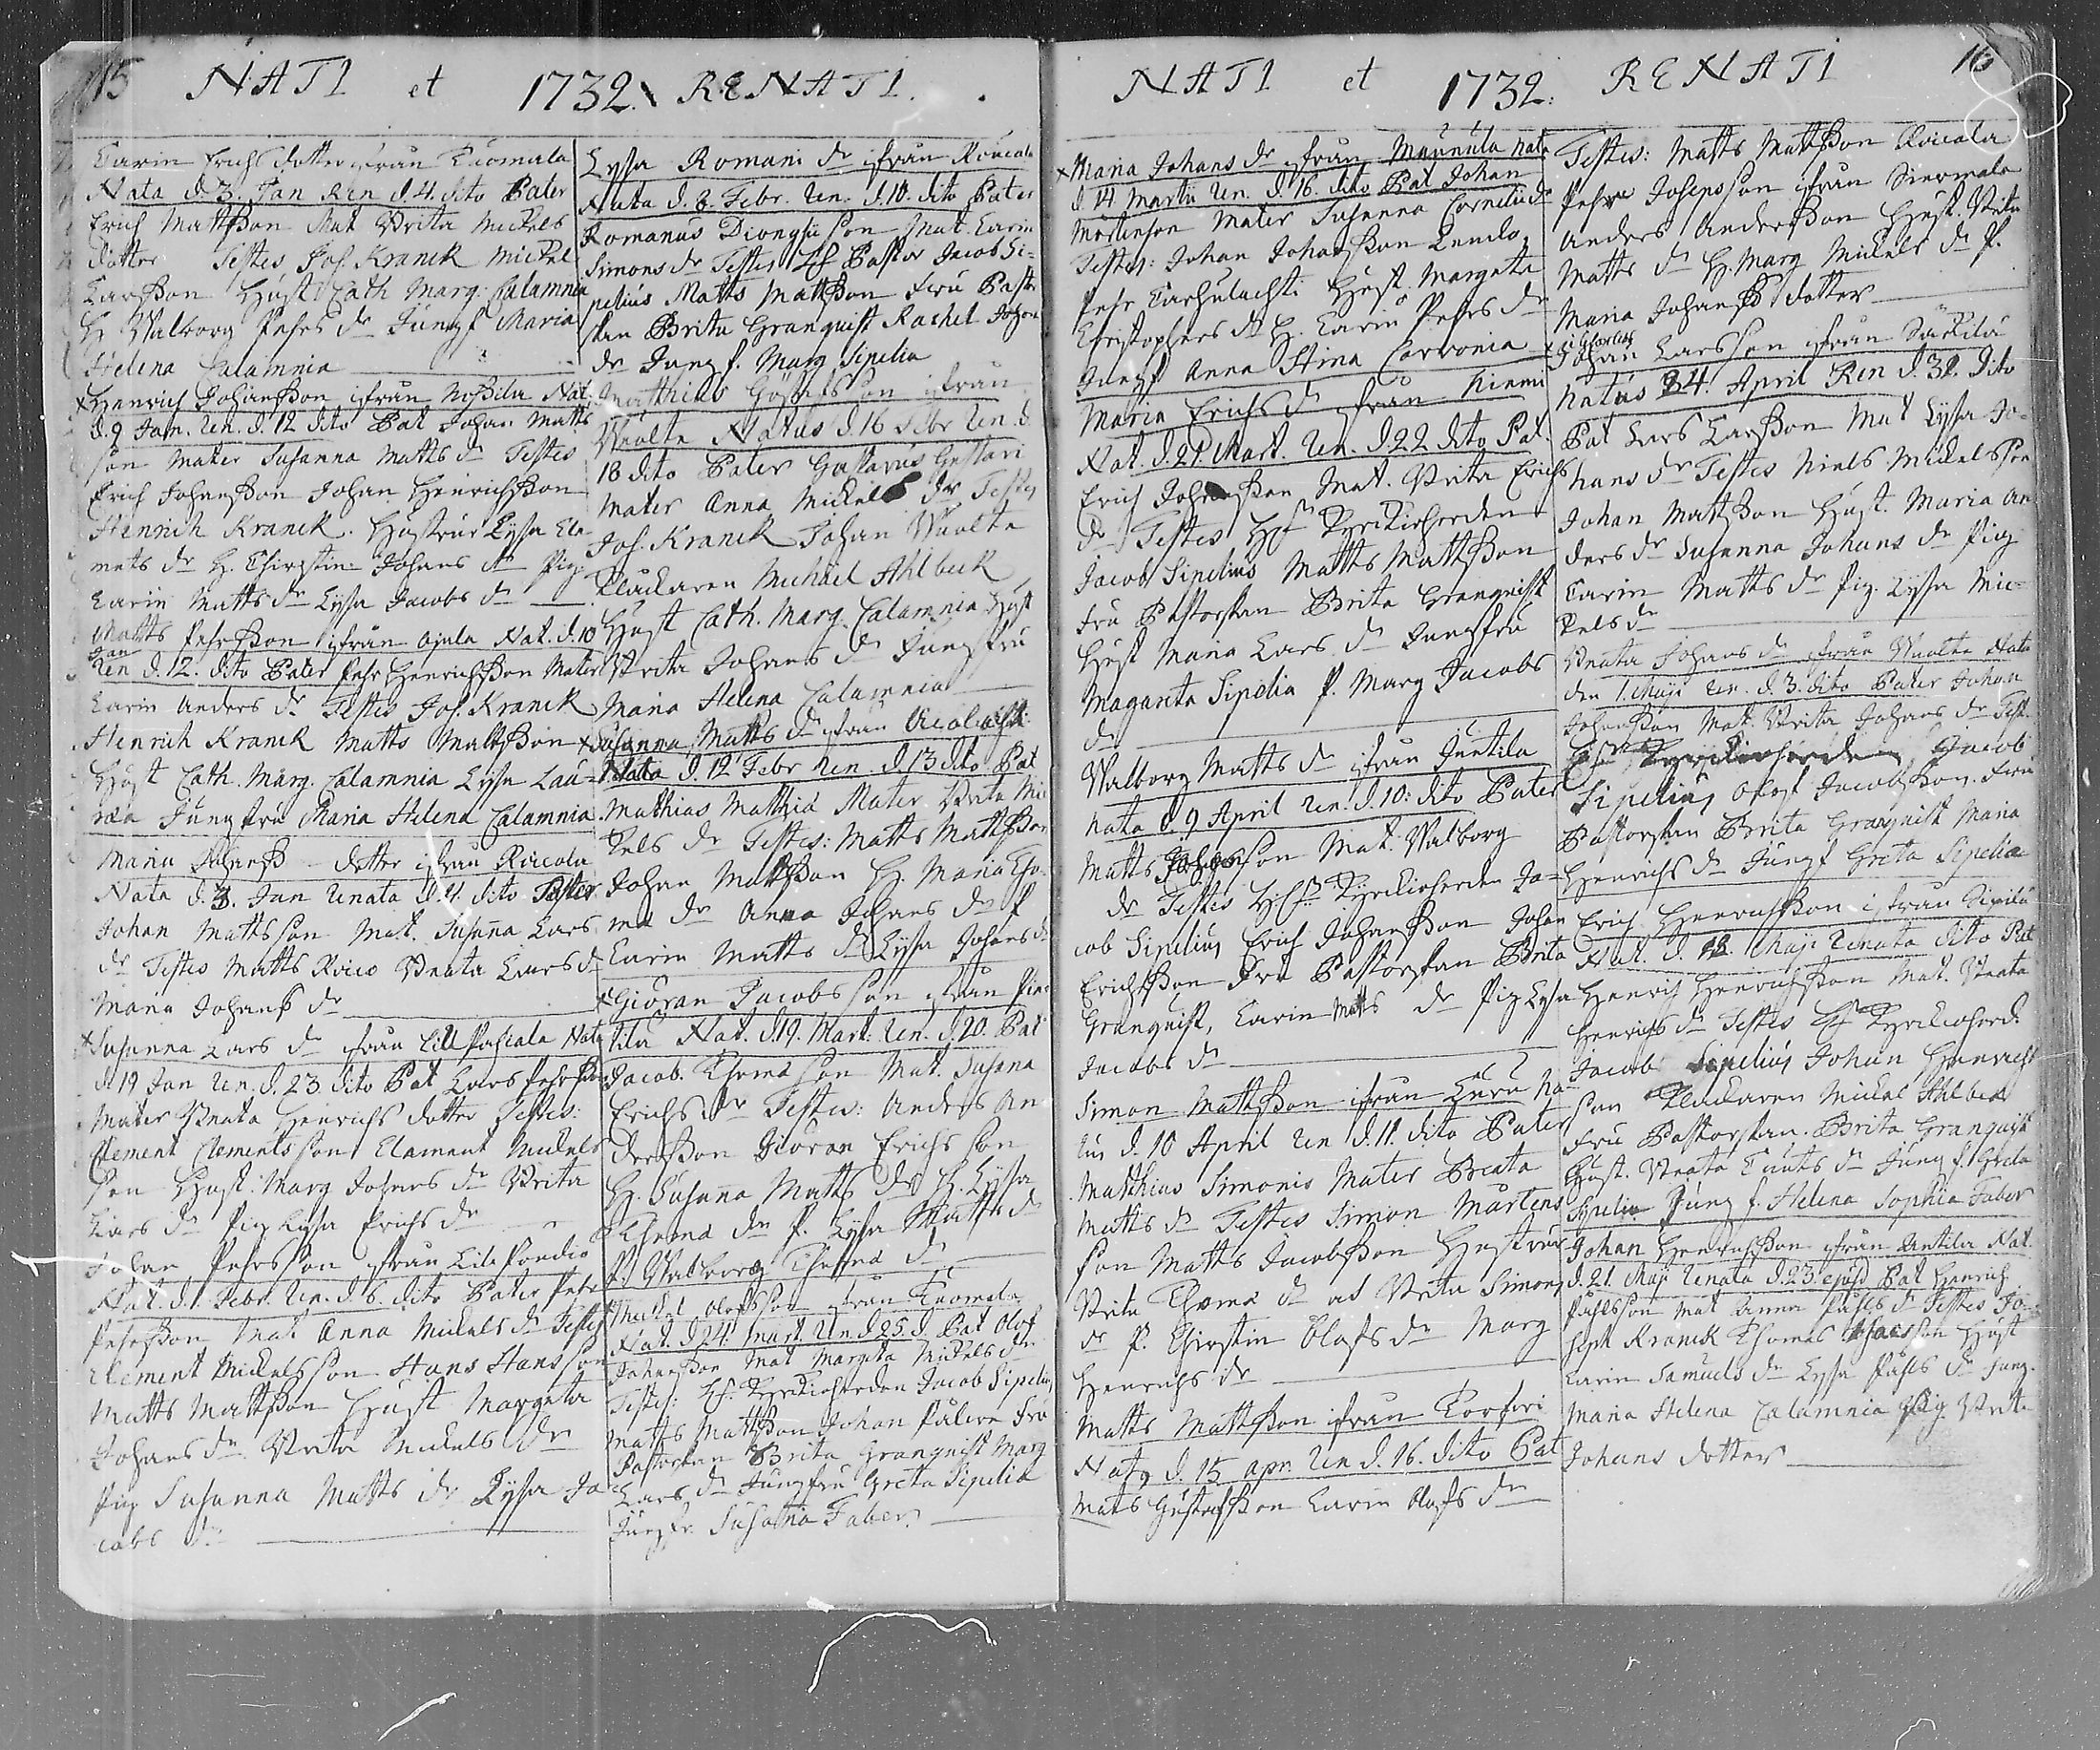 15 NATI et 1732. RENATI.
Carin Erichs dotter ifrån Kuomala
Nata d. 3. Jan Ren d. 4. dito Pater
Erich Mattßon Mat Brita Mickels
dotter Testes Jos. Kranck Mickel
Larßon Hust Cath Marg. Calamnia
H. Walborg Pehrs dr Jungf Maria
Helena Calamnia
x Henrich Johanßon ifrån Nossila Nat.
d. 9 Jan. Ren. d. 12 dito Pat Johan Matts
son Mater Susanna Matts dr Testes
Erich Johanßon Johan Henrichßon
Henrich Kranck. Hustrur Lysa Cle-
mets dr H. Chirstin Johans dr Pig
Carin Matts dr Lysa Jacobs dr
Matts Pehrßon ifrån Ojala Nat. d. 10
Jan
Ren d. 12. dito Pater Pehr Henrichßon Mater
Carin Anders dr Testes Jos. Kranck
Henrich Kranck Matts Mattßon
Hust Cath. Marg. Calamnia Lysa Lau-
ræa Jungfru Maria Helena Calamnia
Maria Johanß dotter ifrån Råcola
Nata d. 3. Jan Renata d. 4. dito Pater
Johan Mattsson Mat. Susana Lars
dr Testes Matts Råcco Beata Lars dr
Maria Johanß dr
x Susanna Lars dr ifrån Lill Pasiala Nata
d 19 Jan Ren. d. 23 dito Pat Lars Pehrßon
Mater Beata Henrichs dotter Testes:
Clement Clementsson Clament Mickels
son Hust. Marg Johans dr Brita
Lars dr Pig Lysa Erichs dr
Johan Pehrsson ifrån Lill Pondio
Nat. d. 1. Febr. Ren. d. 6. dito Pater Pehr
Pehrßon Mat Anna Mickels dr Testes
Clement Mickelsson Hans Hansson
Matts Mattßon Hust Margeta
Johans dr Brita Mickels dr
Pig Susanna Matts dr Lysa Ja
cobs dr
Lysa Romani dr ifrån Råucala
Nata d. 8. Febr. Ren. d. 10. dito Pater
Romanus Dionysii son Mat. Carin
Simons dr Testes Hh Pastor Jacob Si-
pelius Matts Mattßon Fru Pastor
skan Brita Granquist Rachel Johan
dr Jungf. Marg Sipelia
Matthias Göstafsson ifrån
Wuolta Natus d. 16 Febr Ren. d.
18 dito Pater Gustavus Gustavi
Mater Anna Mickels dr Testes
Jos. Kranck Johan Wuolta
Klackaren Michael Ahlbeck
Hust Cath. Marg. Calamnia Hust
Brita Johans dr Jungfru
Maria Helena Calamnia
x Susanna Matts dr ifrån
Nata d. 12 Febr Ren. d. 13 dito Pat
Mathias Matthiæ Mater Brita Mic
kels dr Testes: Matts Mattßon
Johan Mattßon H. Maria Tho-
mæ dr Anna Johans dr P
Carin Matts dr Lysa Johans dr
x Giöran Jacobsson ifrån Pin-
tilä Nat. d. 19. Mart. Ren. d. 20. Pat
Jacob. Thomæson Mat. Susana
Erichs dr Testes: Anders An
derßon Giöran Erichsson
H. Susanna Matts dr H. Lysa
Thomæ dr P. Lysa Matts dr
P. Walborg Thomæ dr
x Mickel Olofsson ifrån Kuomala
Nat. d. 24. Mart. Ren d. 25. d. Pat Olof
Johanßon Mat Margeta Mickels dr
Testes: Hh. Kyrckioherden Jacob Sipelius
Matts Mattßon Johan Palere Fru
Pastorskan Brita Granquist Marg
Lars dr Jungfru Greta Sipelia
Jungfr. Susanna Faber
NATI et 1732. RENATI 16
x Maria Johans dr ifrån Maunula Nata
d. 14 Martii Ren. d. 16. dito Pat Johan
Mårtenson Mater Susanna Cornelii dr
Testes: Johan Johanßon Lemlo
Pehr Carhulachti Hust. Margeta
Christophers dr H. Carin Pehrs dr
Jungf Anna Stina Corvonia
Maria Erichs dr ifrån Niemi
Nat. d. 21. Mart. Ren. d. 22 dito Pat.
Erich Johanßon Mat. Brita Erichs
dr Testes Hh Kyrckioherden
Jacob Sipelius Matts Mattßon
Fru Pastorskan Brita Granquist
Hust Maria Lars dr Jungfru
Maganta Sipelia P. Marg Jacobs
dr
Walborg Matts dr ifrån Juntila
Nata d. 9 April Ren. d. 10: dito Pater
Matts son Mat. Walborg
dr Testes Hh Kyrckioherden Ja-
cob Sipelius Erich Johanßon Johan
Erichßon Fru Pastorskan Brita
Granquist, Carin Matts dr Pig Lysa
Jacobs dr
Simon Mattßon ifrån Luru Na-
tus d. 10 April Ren d. 11. dito Pater
Matthias Simonis Mater Beata
Matts dr Testes Simon Mårtens
son Matts Jacobßon Hustrur
Brita Thomæ dr at Brita Simons
dr P. Chirstin Olofs dr Marg
Henrichs dr
Matts Mattßon ifrån Korfwri
Nat9 d. 15 apr. Ren d. 16. dito Pat
Mats Gustafßon Carin Olofs dr
Testes: Matts Mattßon Råcola
Pehr Josepsson ifrån Siermala
Anders Anderßon Hust. Brita
Matts dr H. Marg Mickels dr P.
Maria Johanß dotter
x Johan Larsson ifrån Särkilä
Natus 24. April Ren d. 30. dito
Pat Lars Larßon Mat Lysa Jo-
hans dr Testes Niels Mickelsson
Johan Mattßon Hust. Maria An
ders dr Susanna Johans dr Pig
Carin Matts dr Pig. Lysa Mic-
kels dr
Beata Johans dr ifrån Wuolta Nata
den 1. Maji Ren. d. 3. dito Pater Johan
Johanßon Mat. Brita Johans dr Test.
Kyrckioherden Jacob
Sipelius Olof Jacobßon. Fru
Pastorskan Brita Granquist Maria
Henrichs dr Jungf Greta Sipelia
Erich Henrichßon ifrån Sipilä
Nat. d. 12. Maji Renata dito Pat
Henrich Henrichßon Mat. Beata
Henrichs dr Testes Hh Kyrckioherd.
Jacob Sipelius Johan Henrichs
son Klackaren Mickel Ahlbeck
Fru Pastorskan. Brita Granquist
Hust. Beata Cnuts dr Jungf. Greta
Sipelia Jungf. Helena Sophia Faber
Johan Henrichßon ifrån Antila Nat.
d. 21. Maji Renata d. 23. ejusd Pat Henrich
Påhlsson Mat Anna Påhls dr Testes Jo-
seph Kranck Thomas son Hust
Carin Samuels dr Lysa Påhls dr Jung.
Maria Helena Calamnia Pig. Brita
Johans dotter